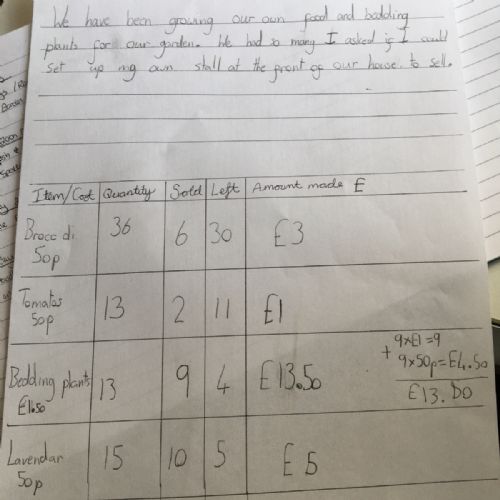 We have been growing our own food and bedding
plants for our garden. We had so many I asked if I could
set up my own stall at the front of our house to sell.
Item/Cost Quantity Sold Left Amount made £
Broccoli 36 6 30 £3
50p
Tomatos 13 2 11 £1
50p
Bedding plants 13 9 4 £13.50
£1.50
9x£1=9
+ 9x50p=£4.50
£13.50
Lavendar 15 10 5 £5
50p